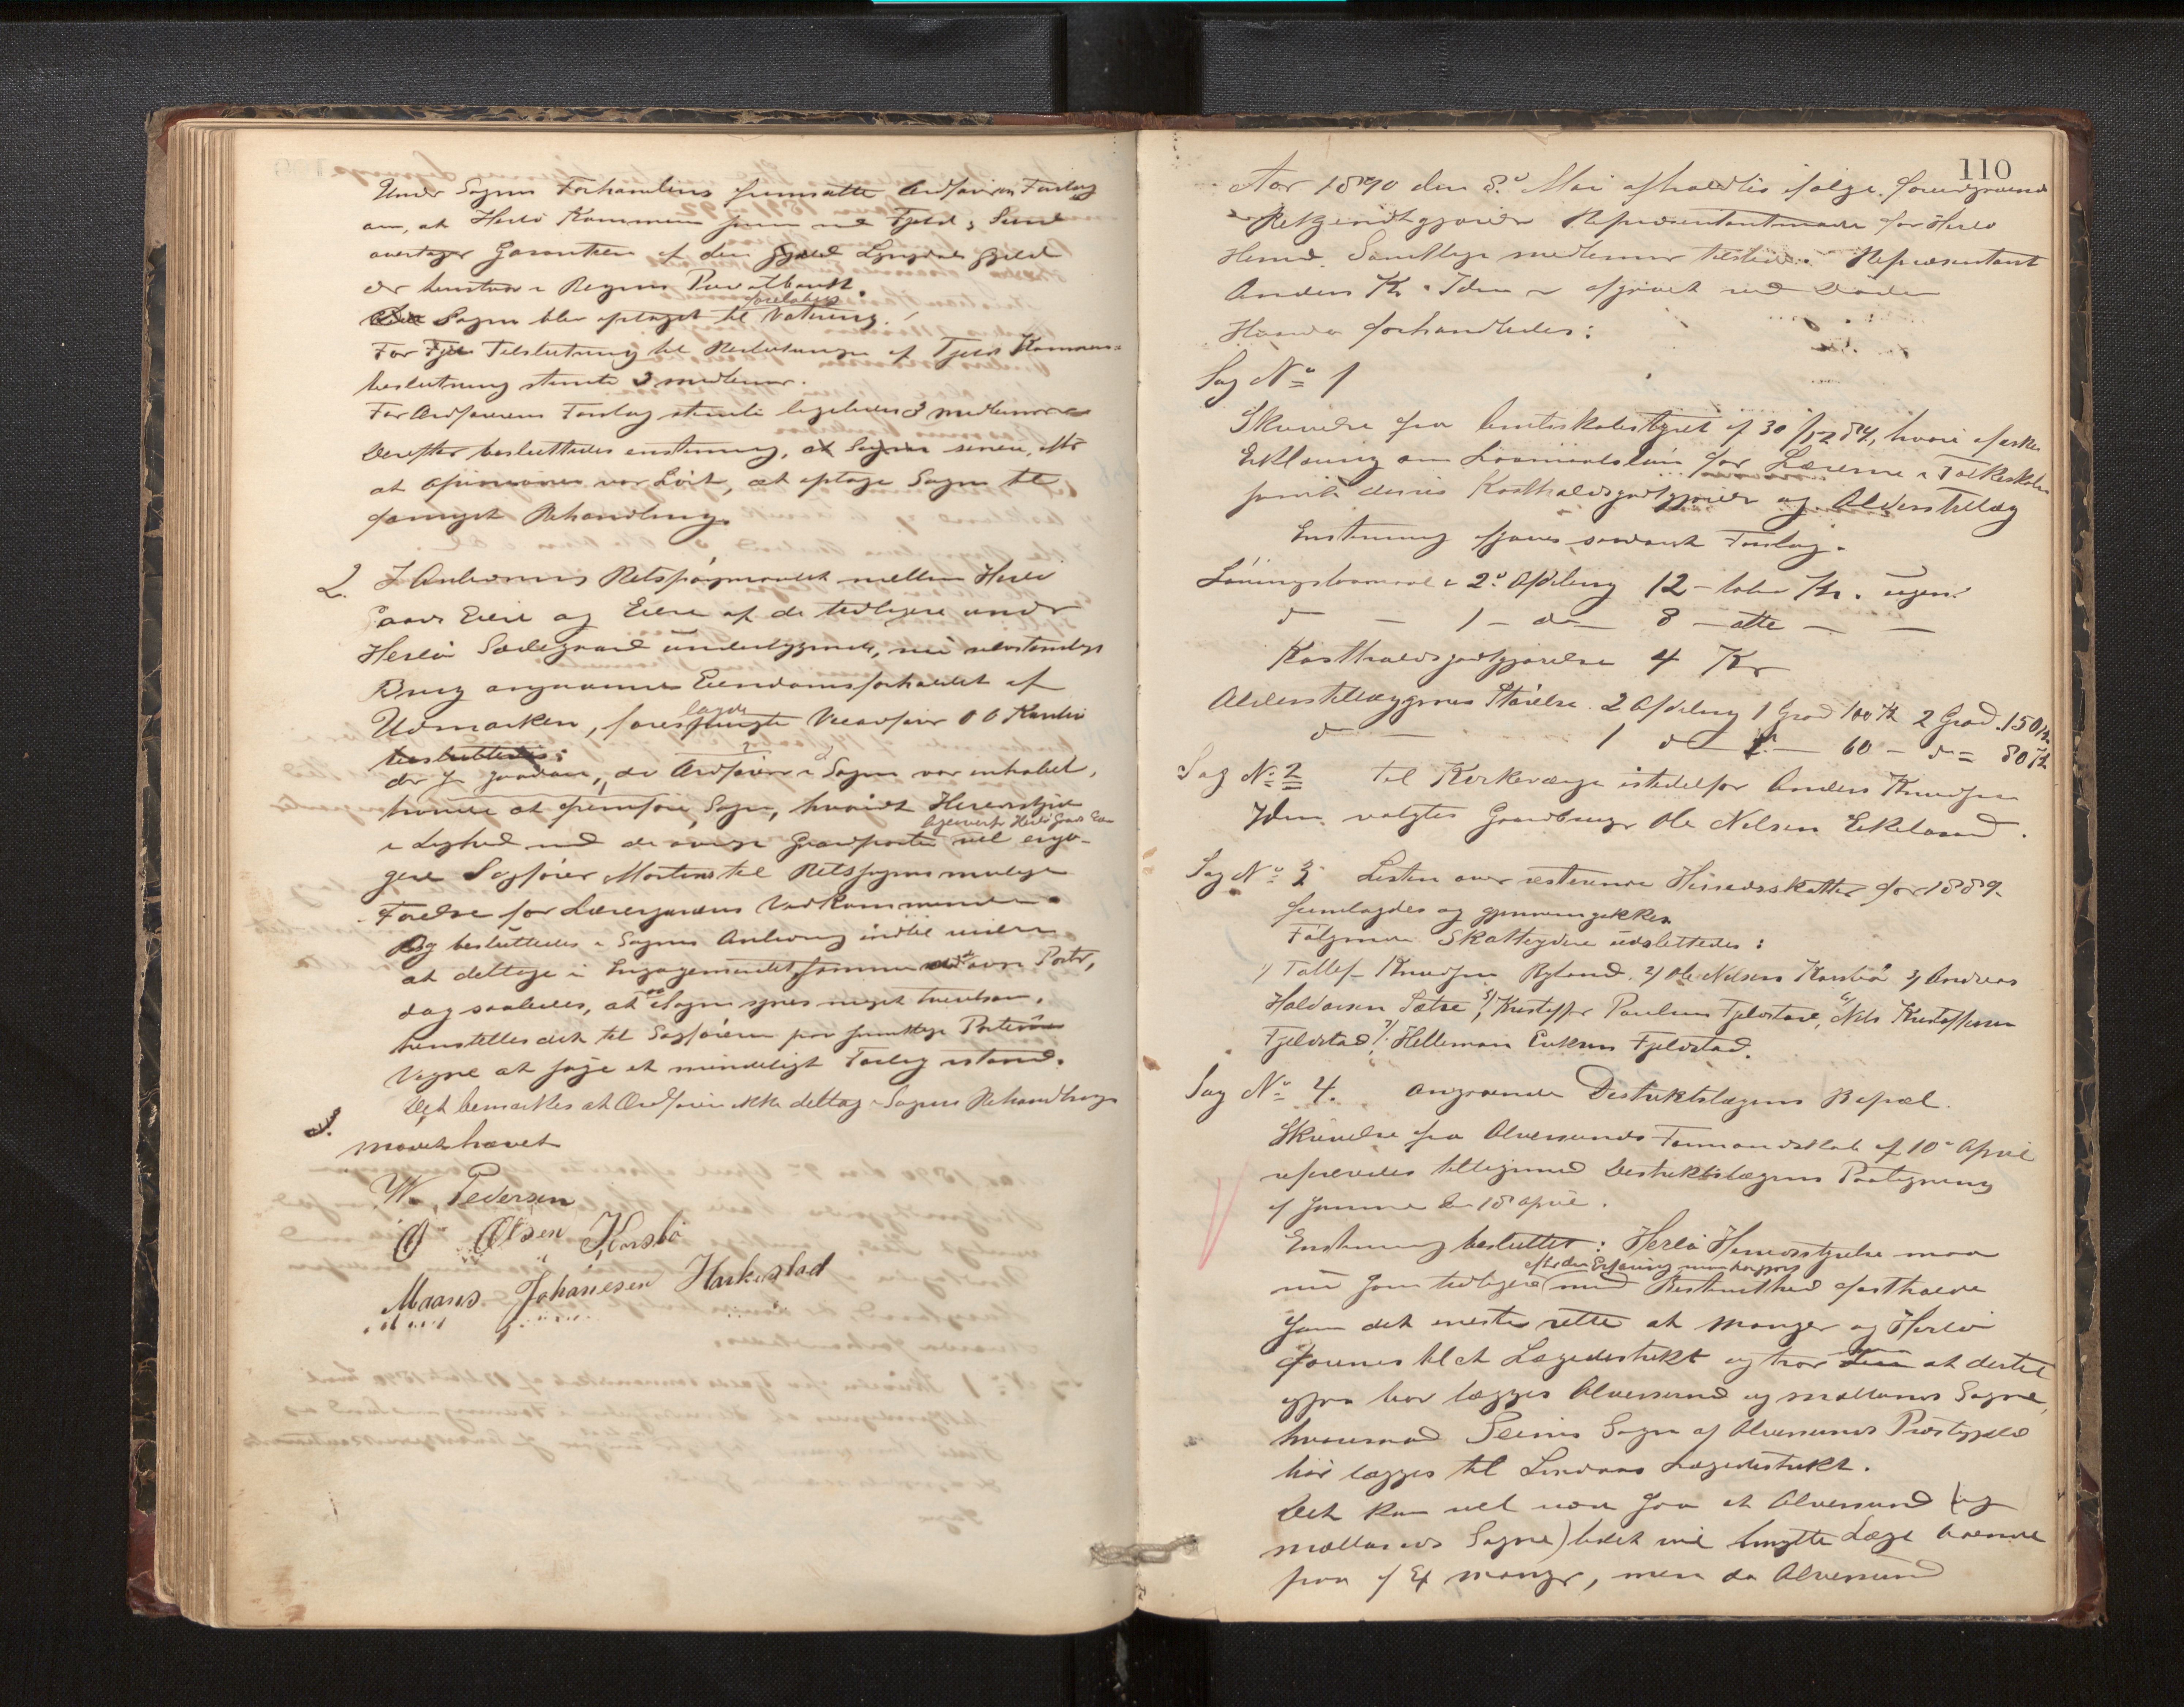 Under Sagens Forhandling fremsatte Ordføreren Forslag
om, at Herlø Kommune sammen med Fjeld, Sund
overtager Garantien af den Gjæld
der henstaar i Bergens Privatbank.
Sagen blev foreløbig optaget til Votering.
For Tilslutning til Beslutningen af Fjeld Kommune-
beslutning stemte 3 medlemer.
For Ordførerens Forslag stemte ligeledes 3 medlemmer
Derefter besluttedes enstemmig, senere, efter
at Opinionen var hørt, at optage Sagen til
fornyet Behandling.
2. I Anledning Retsspørgsmaalet mellem Herlø
Gaards Eiere og Eiere af de tidligere under
Herlø Sædegaard underliggende, nu selvstændige
Brug angaaende Eiendomsforholdet af
Udmarken, forelagde Viceordfører O O Korslø
der, da Ordfører i Sagen var inhabil,
at fremføre Sagen, hvorvidt Herredsstyret
ligeoverfor Herlø Gaards Eiere
i Lighed med de øvrige Gaardparter vil enga-
gere Sagfører Mortens til Retssagens mulige
Førelse for Lærergaardens Vedkommende.
Og besluttedes i Sagens Anledning indtil videre
at deltage i Engagementet sammen med de øvrige Parter,
dog saaledes, at da Sagen synes meget tvivlsom,
henstilles det til Sagføreren paa samtlige Parters
Vegne at søge et mindeligt Forlig istand.
Det bemærkes at Ordføreren ikke deltog i Sagens Behandling
3.
Mødet hævet
W. Pedersen
O Olsen Korslø
Maans Johanesen Harkestad
110
Aar 1890 den 8de Mai afholdtes ifølge foregaaende
Bekjendtgjørelse Repræsentantmøde for Herlø
Herred. Samtlige medlemer tilstede. Repræsentant
Anders K. Iden er afgaaet ved Døden
Hvorda forhandledes:
Sag No 1
Skrivelse fra Amtsskolestyret af 30/12 89, hvori æskes
Erklæring om Løn for Lærerne i Folkeskolen
samt deres Kostholdsgodtgjørelse og Alderstillæg
Enstemmig afgaves saadant Forslag.
Lønningsbeløb i 2den Afdeling 12 – tolv Kr. ugen.
do – 1 – do – 8 – otte – –
Kostholdsgodtgjørelse 4 Kr
Alderstillæggenes Størelse. 2 Afdeling 1 Grad 100 K 2 Grad 150 K.
do – 1 do – 60 – do = 80 K
Sag No 2 Til Kirkeværge istedetfor Anders Knudsen
Iden valgtes Gaardbruger Ole Nilsen Eikeland.
Sag No 3 Listen over resterende Herredsskatter for 1889
fremlagdes og gjennemgikkes
Følgende Skatteydere udslettedes:
1/ Tollef Knudsen Byland. 2/ Ole Nilsen Korslø 3/ Andreas
Haldorsen Sætre, 5/ Kristoffer Paulsen Fjeldstad, 6/ Nils Kristoffersen
Fjeldstad, 7/ Helleman Eriksen Fjeldstad.
Sag No 4. Angaaende Distriktslægens Bopæl.
Skrivelse fra Alversunds Formandskab af 10de April
refereredes tilligemed Distriktslægens Paategning
af samme den 18 April.
Enstemmig besluttet: Herlø Herredsstyrelse maa
efter den Erfaring man har gjort
nu som tidligere med Bestemthed fastholde
som det eneste rette at Manger og Herlø
forenes til et Lægedistrikt og tror at dertil
ogsaa bør lægges Alversund og Mællands Sogne,
hvorimod Seims Sogn af Alversunds Præstegjeld
bør lægges til Lindaas Lægedistrikt.
Det kan vel være saa at Alversund (og
Mællands Sogne) lidet vil benytte Læge boende
paa Manger, men da Alversund